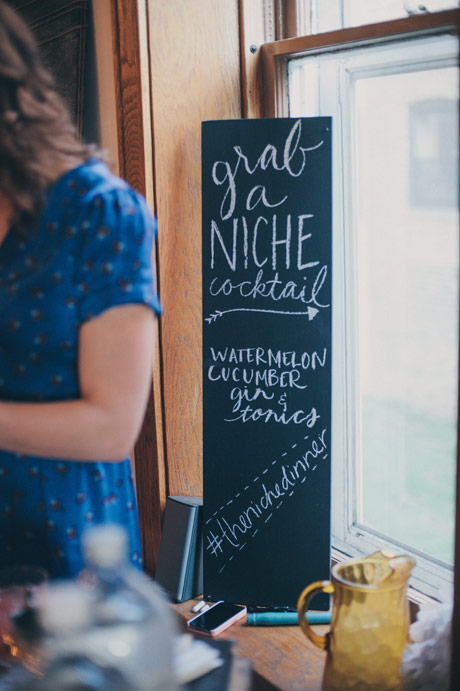 grab
a
NICHE
cocktail
WATERMELON
CUCUMBER
gin &
tonics
#thenichedinner